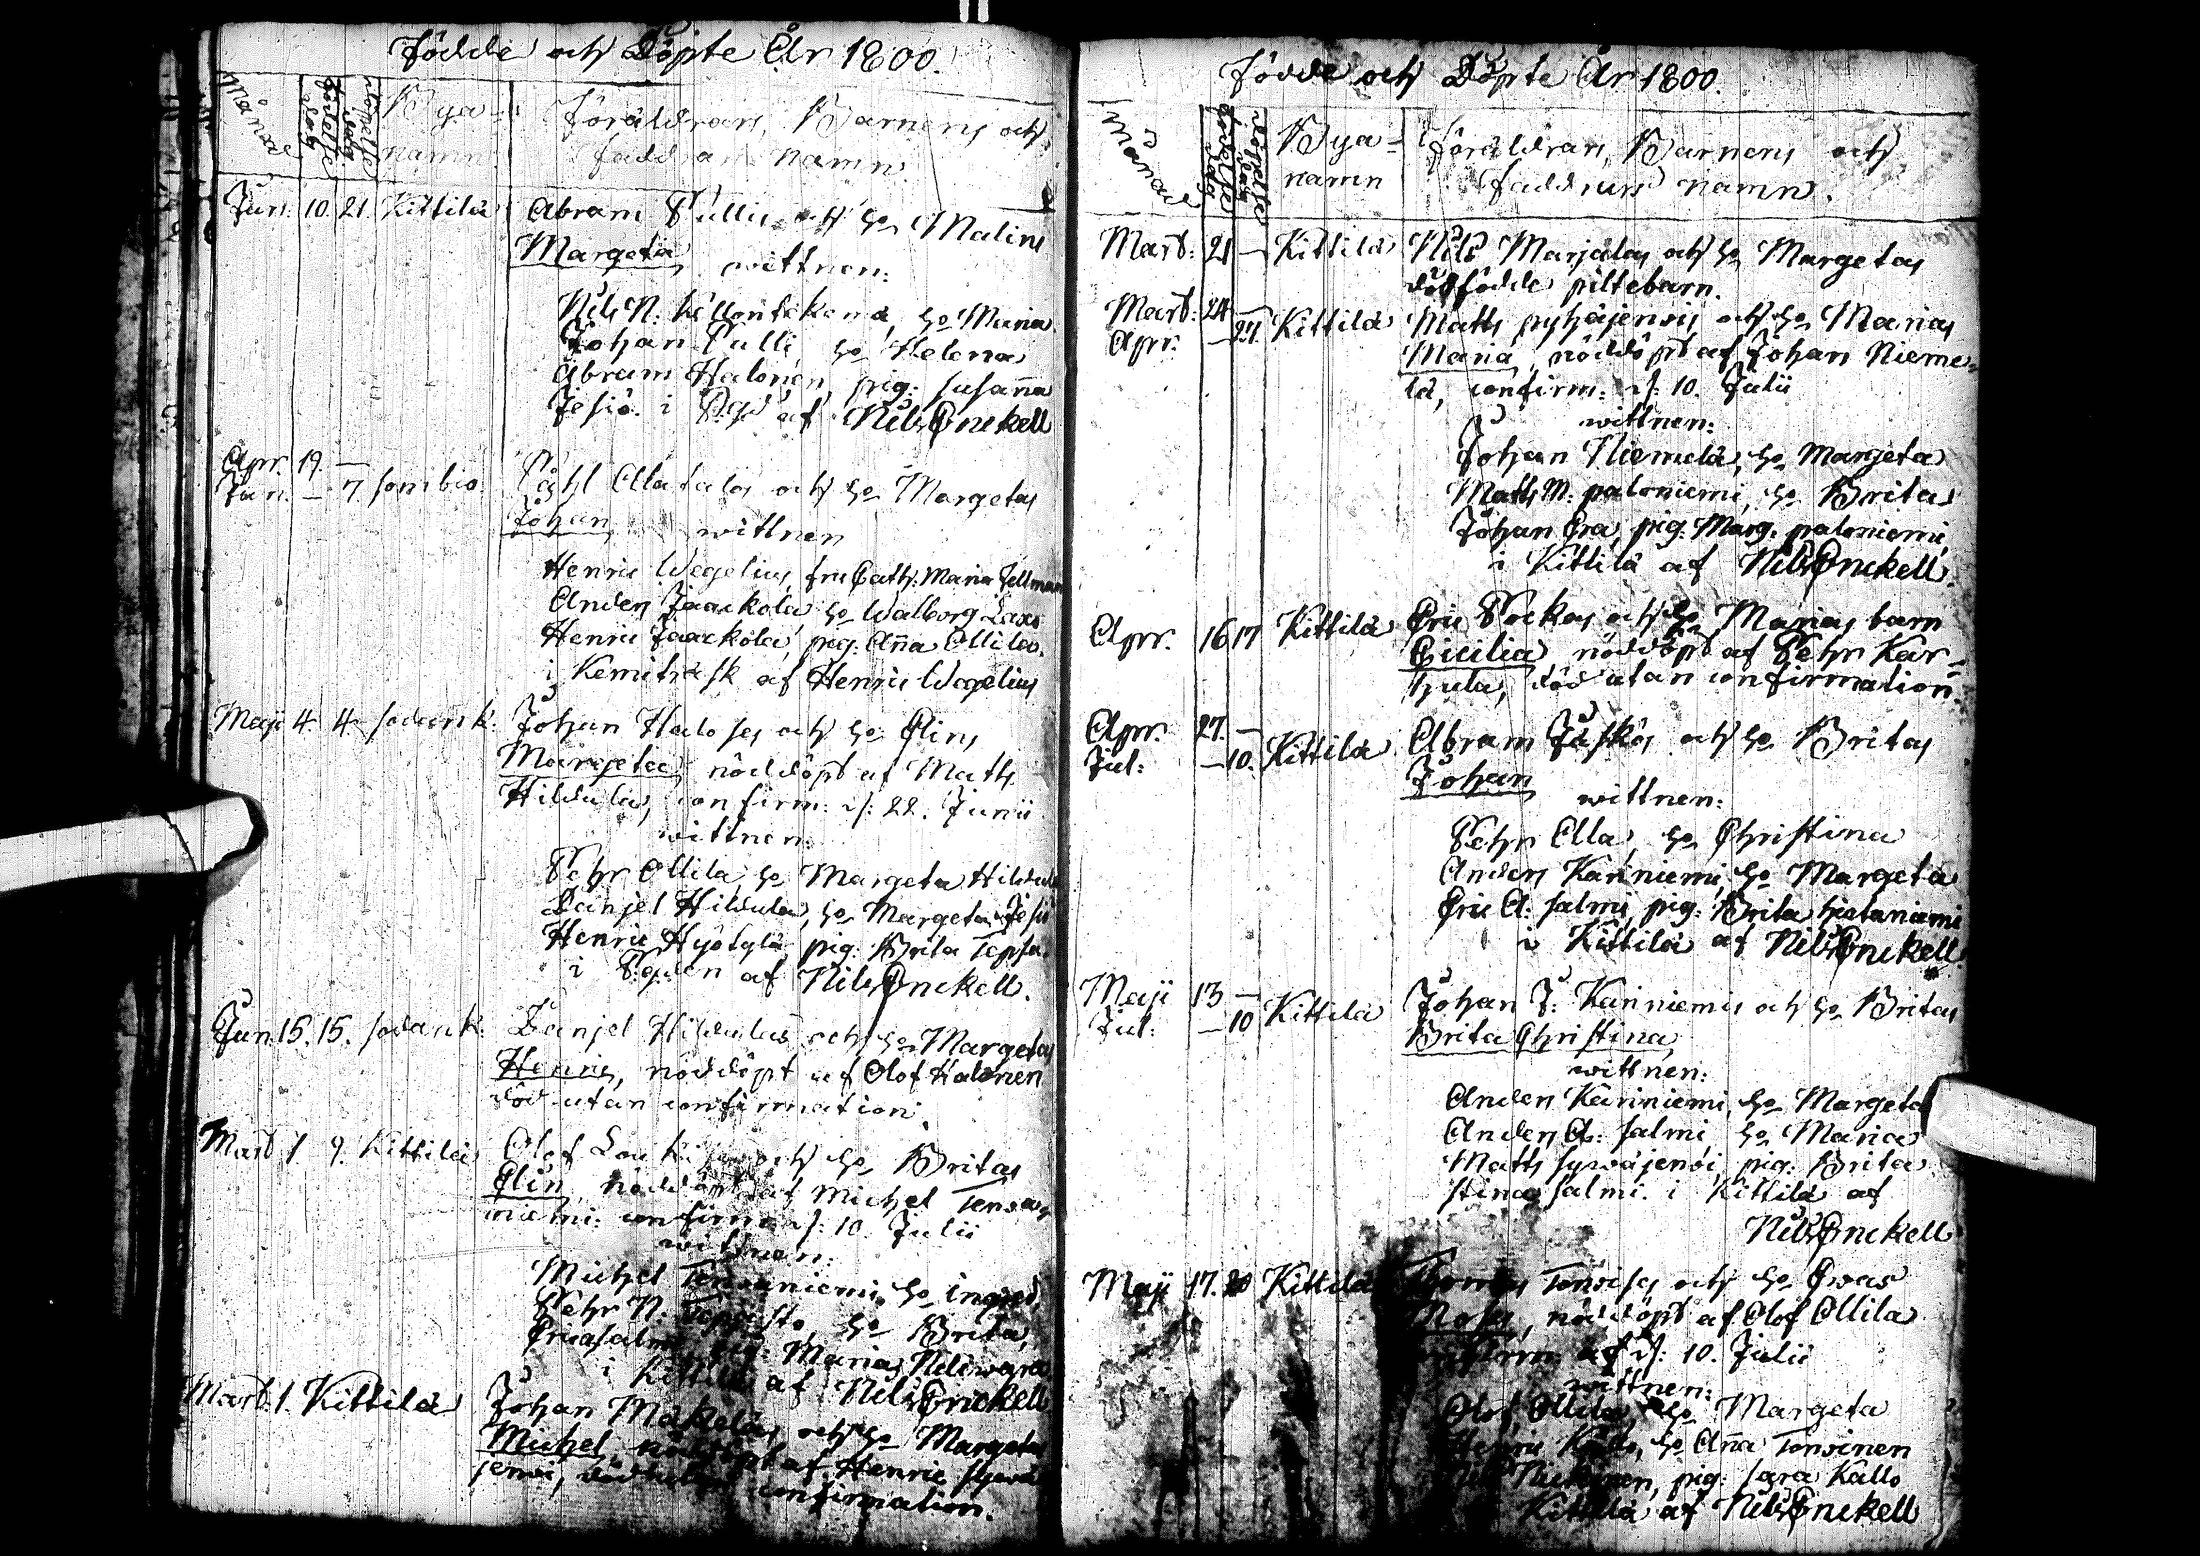 Födde och Döpte År 1800.
Månad
födelse dag
döpelse dag
Bya-
namn
Föräldrars, Barnens och
faddrars namn.
Jun: 10. 21. Kittilä Abram Pullis och ho Malins
Margeta wittnen:
Nils N: ho Maria
Johan Pulli, ho Helena
Abram Halonen, pig: Susanna
Jesiö. i af Nils Enckell
Apr. 19. —
Jun. — 7 Sombio Påhl Alatalos och ho Margetas
Johan wittnen
Henric Wegelius, fru Cath: Maria Fellman
Anders Jaackola, ho Walborg Laxo
Henric Jaackola, pig: Anna Ollila.
i Kemiträsk af Henric Wegelius
Maji 4. 4. Sodank: Johan Haloses och ho Elins
Margeta, nöddöpt af Matts
Hildula, confirm: d: 22. Junii
wittnen:
Pehr Ollila, ho Margeta Hildula
Danjel Hildula, ho Margeta Jesiö
Henric Hyötylä, pig: Brita Tepsa.
i af Nils Enckell.
Jun 15. 15. Sodank: Danjel Hildulas och ho Margetas
Henric, nöddöpt af Olof Halonen
död utan confirmation.
Mart. 1. 9. Kittilä Olof och ho Britas
Elin, nöddöpt af Michel Tenwa-
niemi: confirm: d: 10. Julii
wittnen:
Michel Tenwaniemi, ho Ingred,
Pehr N. ho Brita,
pig: Maria Niliwara
i Kittilä af Nils Enckell
Mart. 1. Kittilä Johan Mäkeläs och ho Margetas
Michel, nöddöpt af Henric Sywä-
jerwi, död utan confirmation.
Födde och Döpte År 1800.
Månad
födelse dag
döpelse dag
Bya-
namn
Föräldrars, Barnens och
faddrars namn.
Mart: 21 — Kittilä Nils Marjalas och ho Margetas
dödfödde piltebarn.
Mart: 24 —
Apr. — 27. Kittilä Matts pyhäjerwis och ho Marias
Maria, nöddöpt af Johan Nieme-
lä, confirm: d: 10. Julii
wittnen:
Johan Niemelä, ho Margeta
Matts M: paloniemi, ho Brita
Johan Era, pig: Marg: paloniemi,
i Kittilä af Nils Enckell.
Apr. 16 17 Kittilä Eric Pockas och ho Marias barn
Cicilia nöddöpt af Pehr Kar-
hula, död utan confirmation.
Apr. 27. —
Jul: — 10. Kittilä Abram Jäskös och ho Britas
Johan
wittnen:
Pehr Alla, ho Christina
Anders Kanniemi, ho Margeta
Eric A: Salmi, pig: Brita hietaniemi
i Kittilä af Nils Enckell
Maji 13 —
Jul: — 10 Kittilä Johan J: Kanniemis och ho Britas
Brita Christina,
wittnen:
Anders Kanniemi, ho Margeta
Anders A: Salmi, ho Maria
Matts Sywäjerwi, pig: Brita
Stina Salmi. i Kittilä af
Nils Enckell
Maji 17. 20 Kittilä Thomas Tonsises och ho Ewas
nöddöpt af Olof Ollila
confirm: af d: 10. Julii
wittnen:
Olof Ollila, ho Margeta
Henric ho Anna Tonsinen
pig: Sara Kallo
Kittilä af Nils Enckell